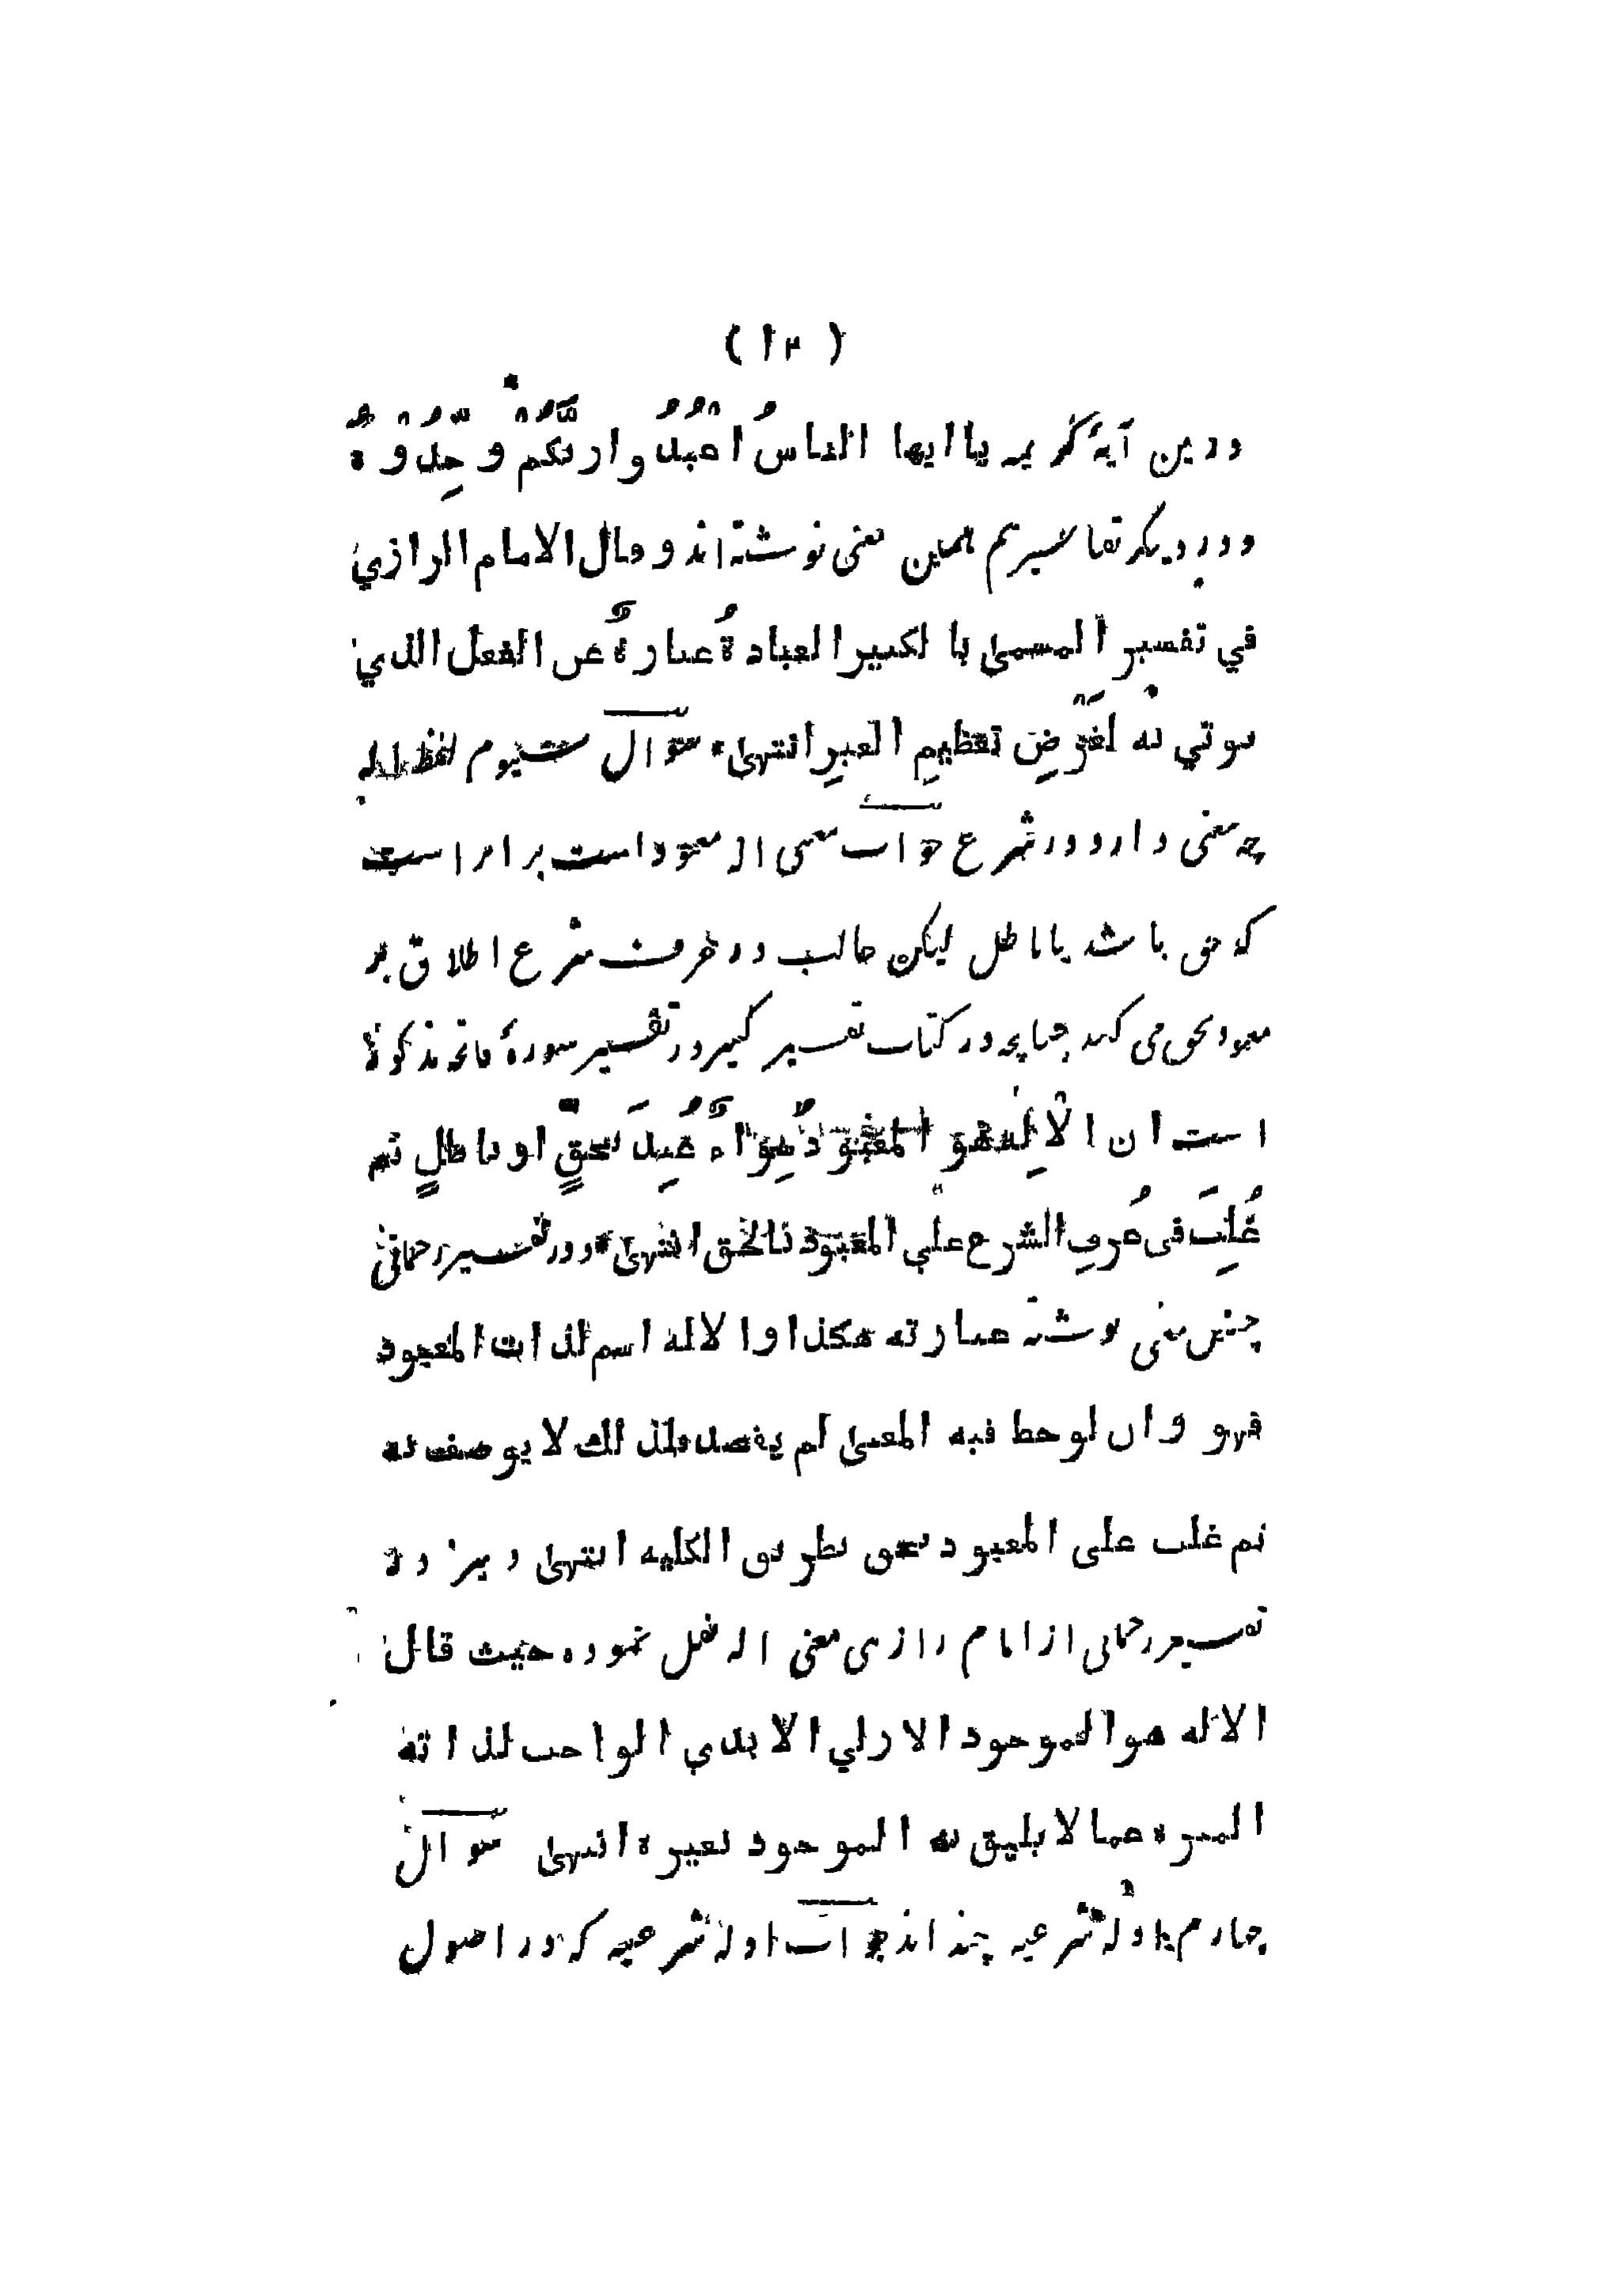 ( ۱۲ )
ودرین آیهٔ کریمه یا ایها الناسُ اعبُدُوا ربَّکُم وَحِّدُوهُ
ودر دیگر تفاسیر هم همین معنی نوشته اند و قال الامام الرازي
في تفسیر المسمی بالکبیر العبادةُ عبارةٌ عن الفعل الذي
یوتي به لغَرَضِ تعظیمِ الغیرِ انتهی سوال سیوم لفظ اله
چه معنی دارد در شرع جواب معنی اله معبود است برابر است
که حق باشد یا باطل لیکن غالب در عرف شرع اطلاق بر
معبود بحق می کند چنانچه در کتاب تفسیر کبیر در تفسیر سورهٔ فاتحه مذکور
است ان الالِه هو المعبودُ سواءٌ عُبِدَ بحقٍّ او باطلٍ ثم
غُلِبَ فی عُرفِ الشرع علي المعبود بالحق انتهی ودر تفسیر رحمانی
چنین معنی نوشته عبارته هکذا والاله اسم لذات المعبود
فهو وان لوحظ فیه المعنی لم یقصد فلذلك لا یوصف به
ثم غلب علی المعبود بحق بطریق الکلیه انتهی و نیز در
تفسیر رحمانی از امام رازی معنی اله نقل نموده حیث قال
الاله هو الموجود الازلي الابدي الواجب لذاته
المنزه عما لا یلیق به الموجود لغیره انتهی سوال
چهارم ادلهٔ شرعیه چند اند جواب ادلهٔ شرعیه که در اصول